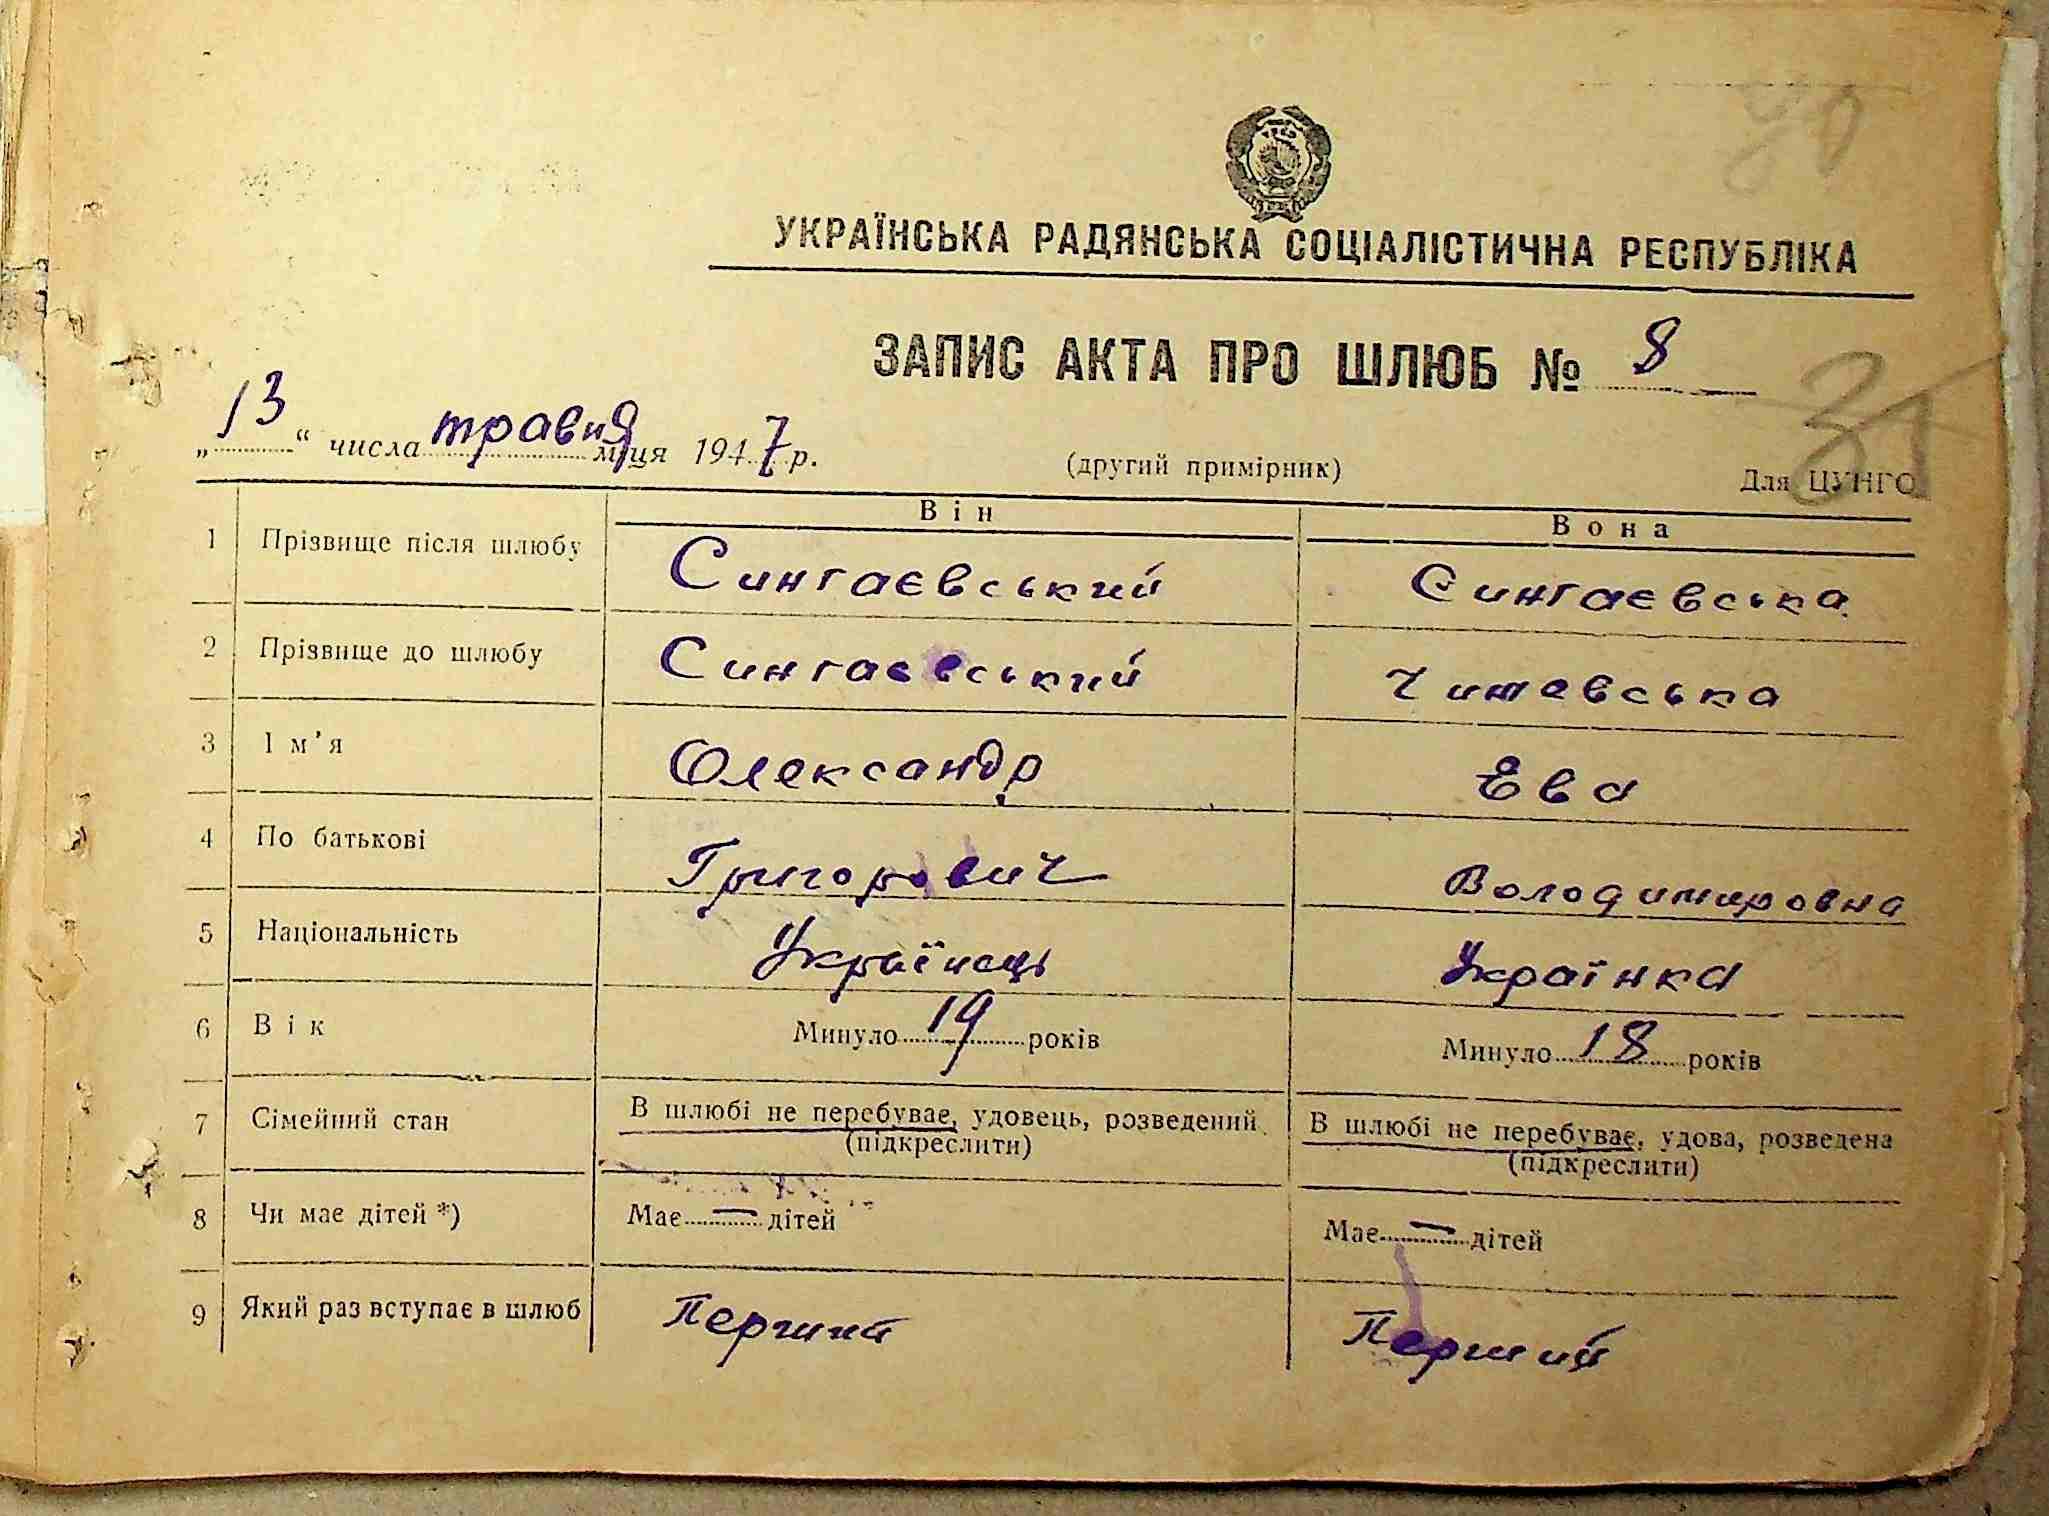 УКРАЇНСЬКА РАДЯНСЬКА СОЦІАЛІСТИЧНА РЕСПУБЛІКА
ЗАПИС АКТА ПРО ШЛЮБ № 8
„13“ числа травня м‑ця 1947 р. (другий примірник) Для ЦУНГО
Він Вона
1 Прізвище після шлюбу Сингаєвський Сингаєвська
2 Прізвище до шлюбу Сингаєвський Чижевська
3 Ім’я Олександр Ева
4 По батькові Григорович Володимировна
5 Національність Українець Українка
6 Вік Минуло 19 років Минуло 18 років
7 Сімейний стан В шлюбі не перебуває, удовець, розведений В шлюбі не перебуває, удова, розведена
(підкреслити) (підкреслити)
8 Чи має дітей *) Має — дітей Має — дітей
9 Який раз вступає в шлюб Перший Перший